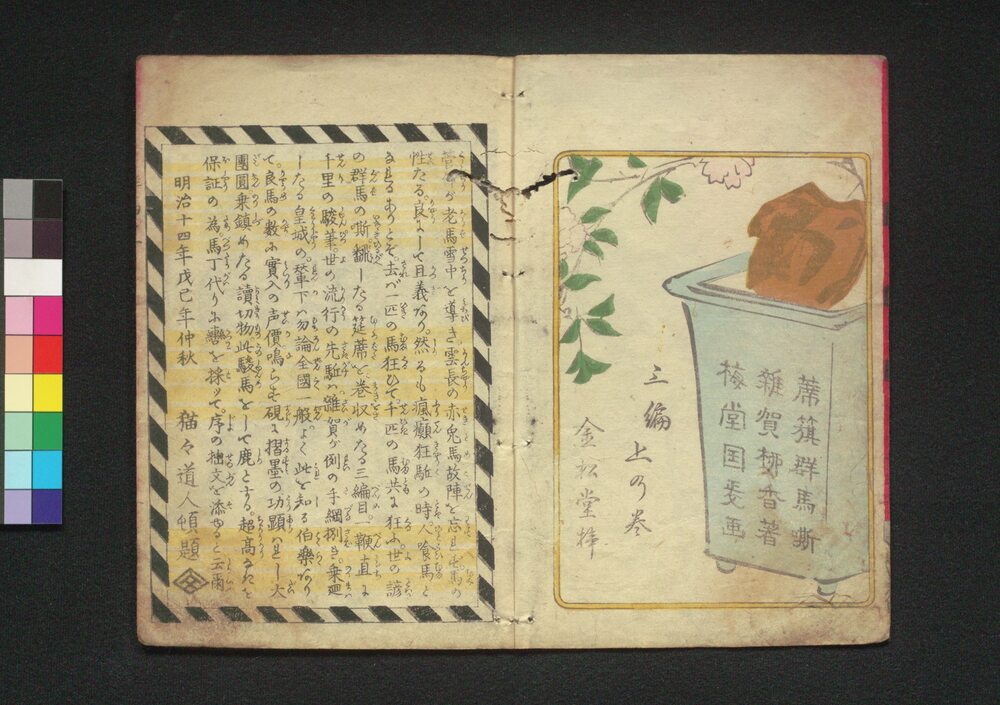 蓆籏群馬嘶
雜賀柳香著
梅堂国政画
三編上の巻
金松堂梓
管仲が老馬雪中を導き雲長の赤兎馬故陣を忘れず馬の
性たる良にして且義なり然るも瘋癲狂駈の時人喰馬と
なるありとぞ去ば一匹の馬狂ひて千匹の馬共に狂ふ世の諺
の群馬の嘶飜したる筵蓆を巻収めたる三編目一鞭直に
千里の駿筆世の流行の先駈は雜賀が例の手綱捌き乗廻
したる皇城の輦下は勿論全國一般よく此を知る伯樂あり
て良馬の數に實入の声價鳴らせ硯に摺墨の功顕はれし大
團圓乗鎮めたる讀切物此駿馬をして鹿とする超高なれど
保証の為馬丁代りに轡を採ッて序の拙文を添ゆると云爾
明治十四年戊己年仲秋
猫々道人頓題